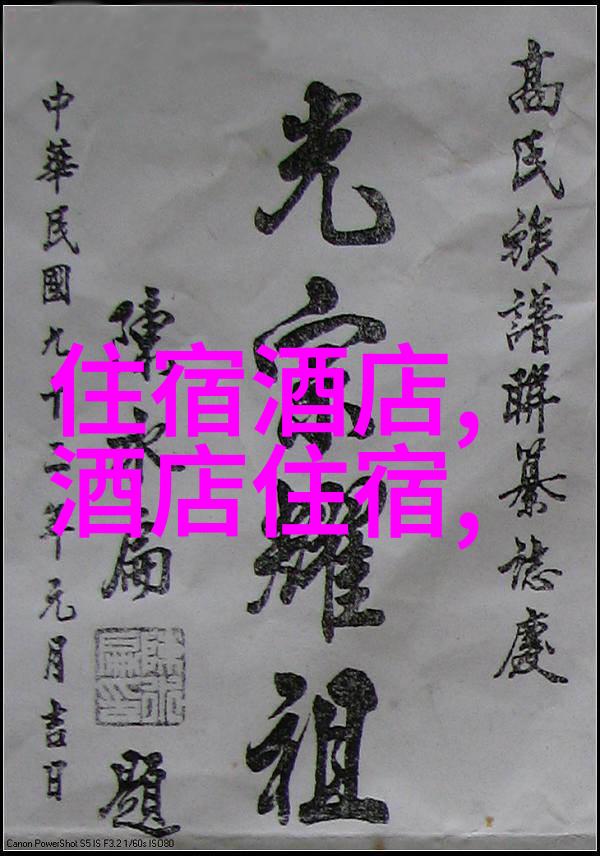 高氏族譜聯纂誌慶
光宗耀祖
陳水扁題
陳水扁印
中華民國九十二年元月吉日
住宿酒店,
酒店住宿,
Canon PowerShot S5 IS F3.2 1/60s ISO80